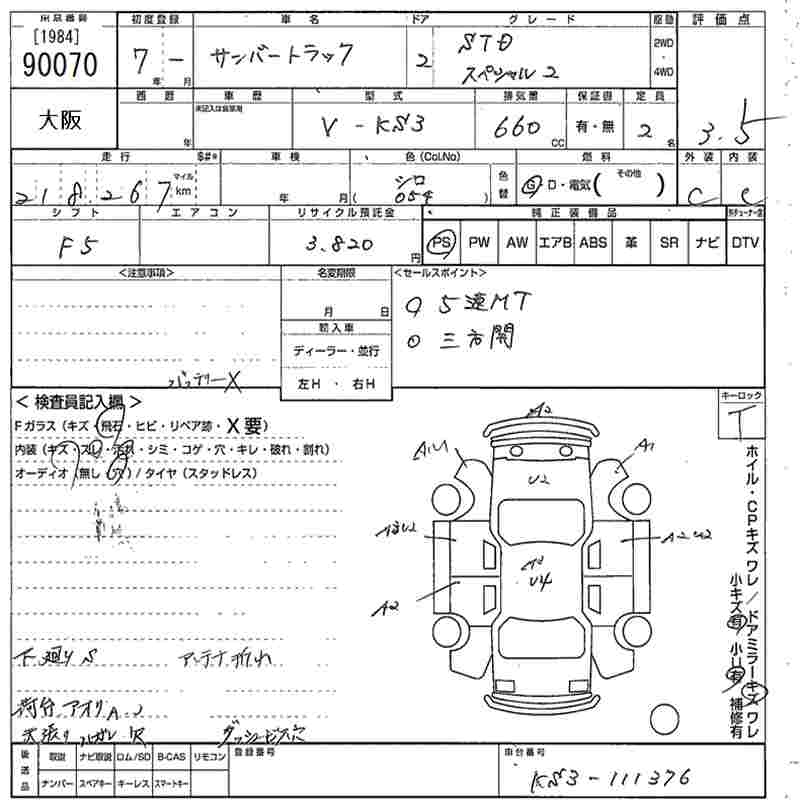 東京番号 初度登録 車名 ドア グレード 駆動 評価点
[1984]
90070
7年 ー月 サンバートラック 2 STD
スペシャル2
2WD
・
4WD
3.5
大阪
西暦 車歴 型式 排気量 保証書 定員
年 未記入は自家用 V-KS3 660 CC 有・無 2名
走行 $#* 車検 色(Col.No) 燃料 外装 内装
218267 マイル km 年 月 シロ 054 色替 G・D・電気( その他 ) C C
シフト エアコン リサイクル預託金 純正装備品
F5 3.820 円 PS PW AW エアB ABS 革 SR ナビ DTV
<注意事項> 名変期限 <セールスポイント>
月 日 ○ 5速MT
輸入車 ○ 三方開
ディーラー・並行
バッテリーX 左H・右H
キーロック
T
< 検査員記入欄 >
Fガラス (キズ・飛石・ヒビ・リペア跡・X要)
内装 (キズ・スレ・汚れ・シミ・コゲ・穴・キレ・破れ・割れ)
オーディオ (無し・穴) / タイヤ (スタッドレス)
A2
A1
U2
A2U2
U4
A2
ホイル・CPキズ ワレ / ドアミラーキズ ワレ
小キズ有 小U有 補修有
下廻りS アンテナ折れ
荷台、アオリA.U
天張りハガレ 穴 ダッシュビス穴
後送品 取説 ナビ取説 ロム/SD B-CAS リモコン 登録番号 車台番号
ナンバー スペアキー キーレス スマートキー KS3-111376